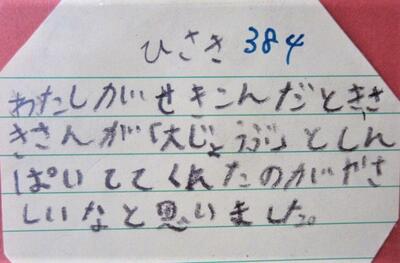 ひさき 384
わたしがいせきこんだとききさ
きさんが「大じょうぶ」としん
ぱいしてくれたのがやさ
しいなと思いました。